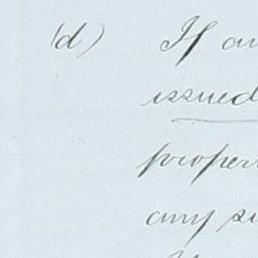 (d) If an
issued
proper
any su